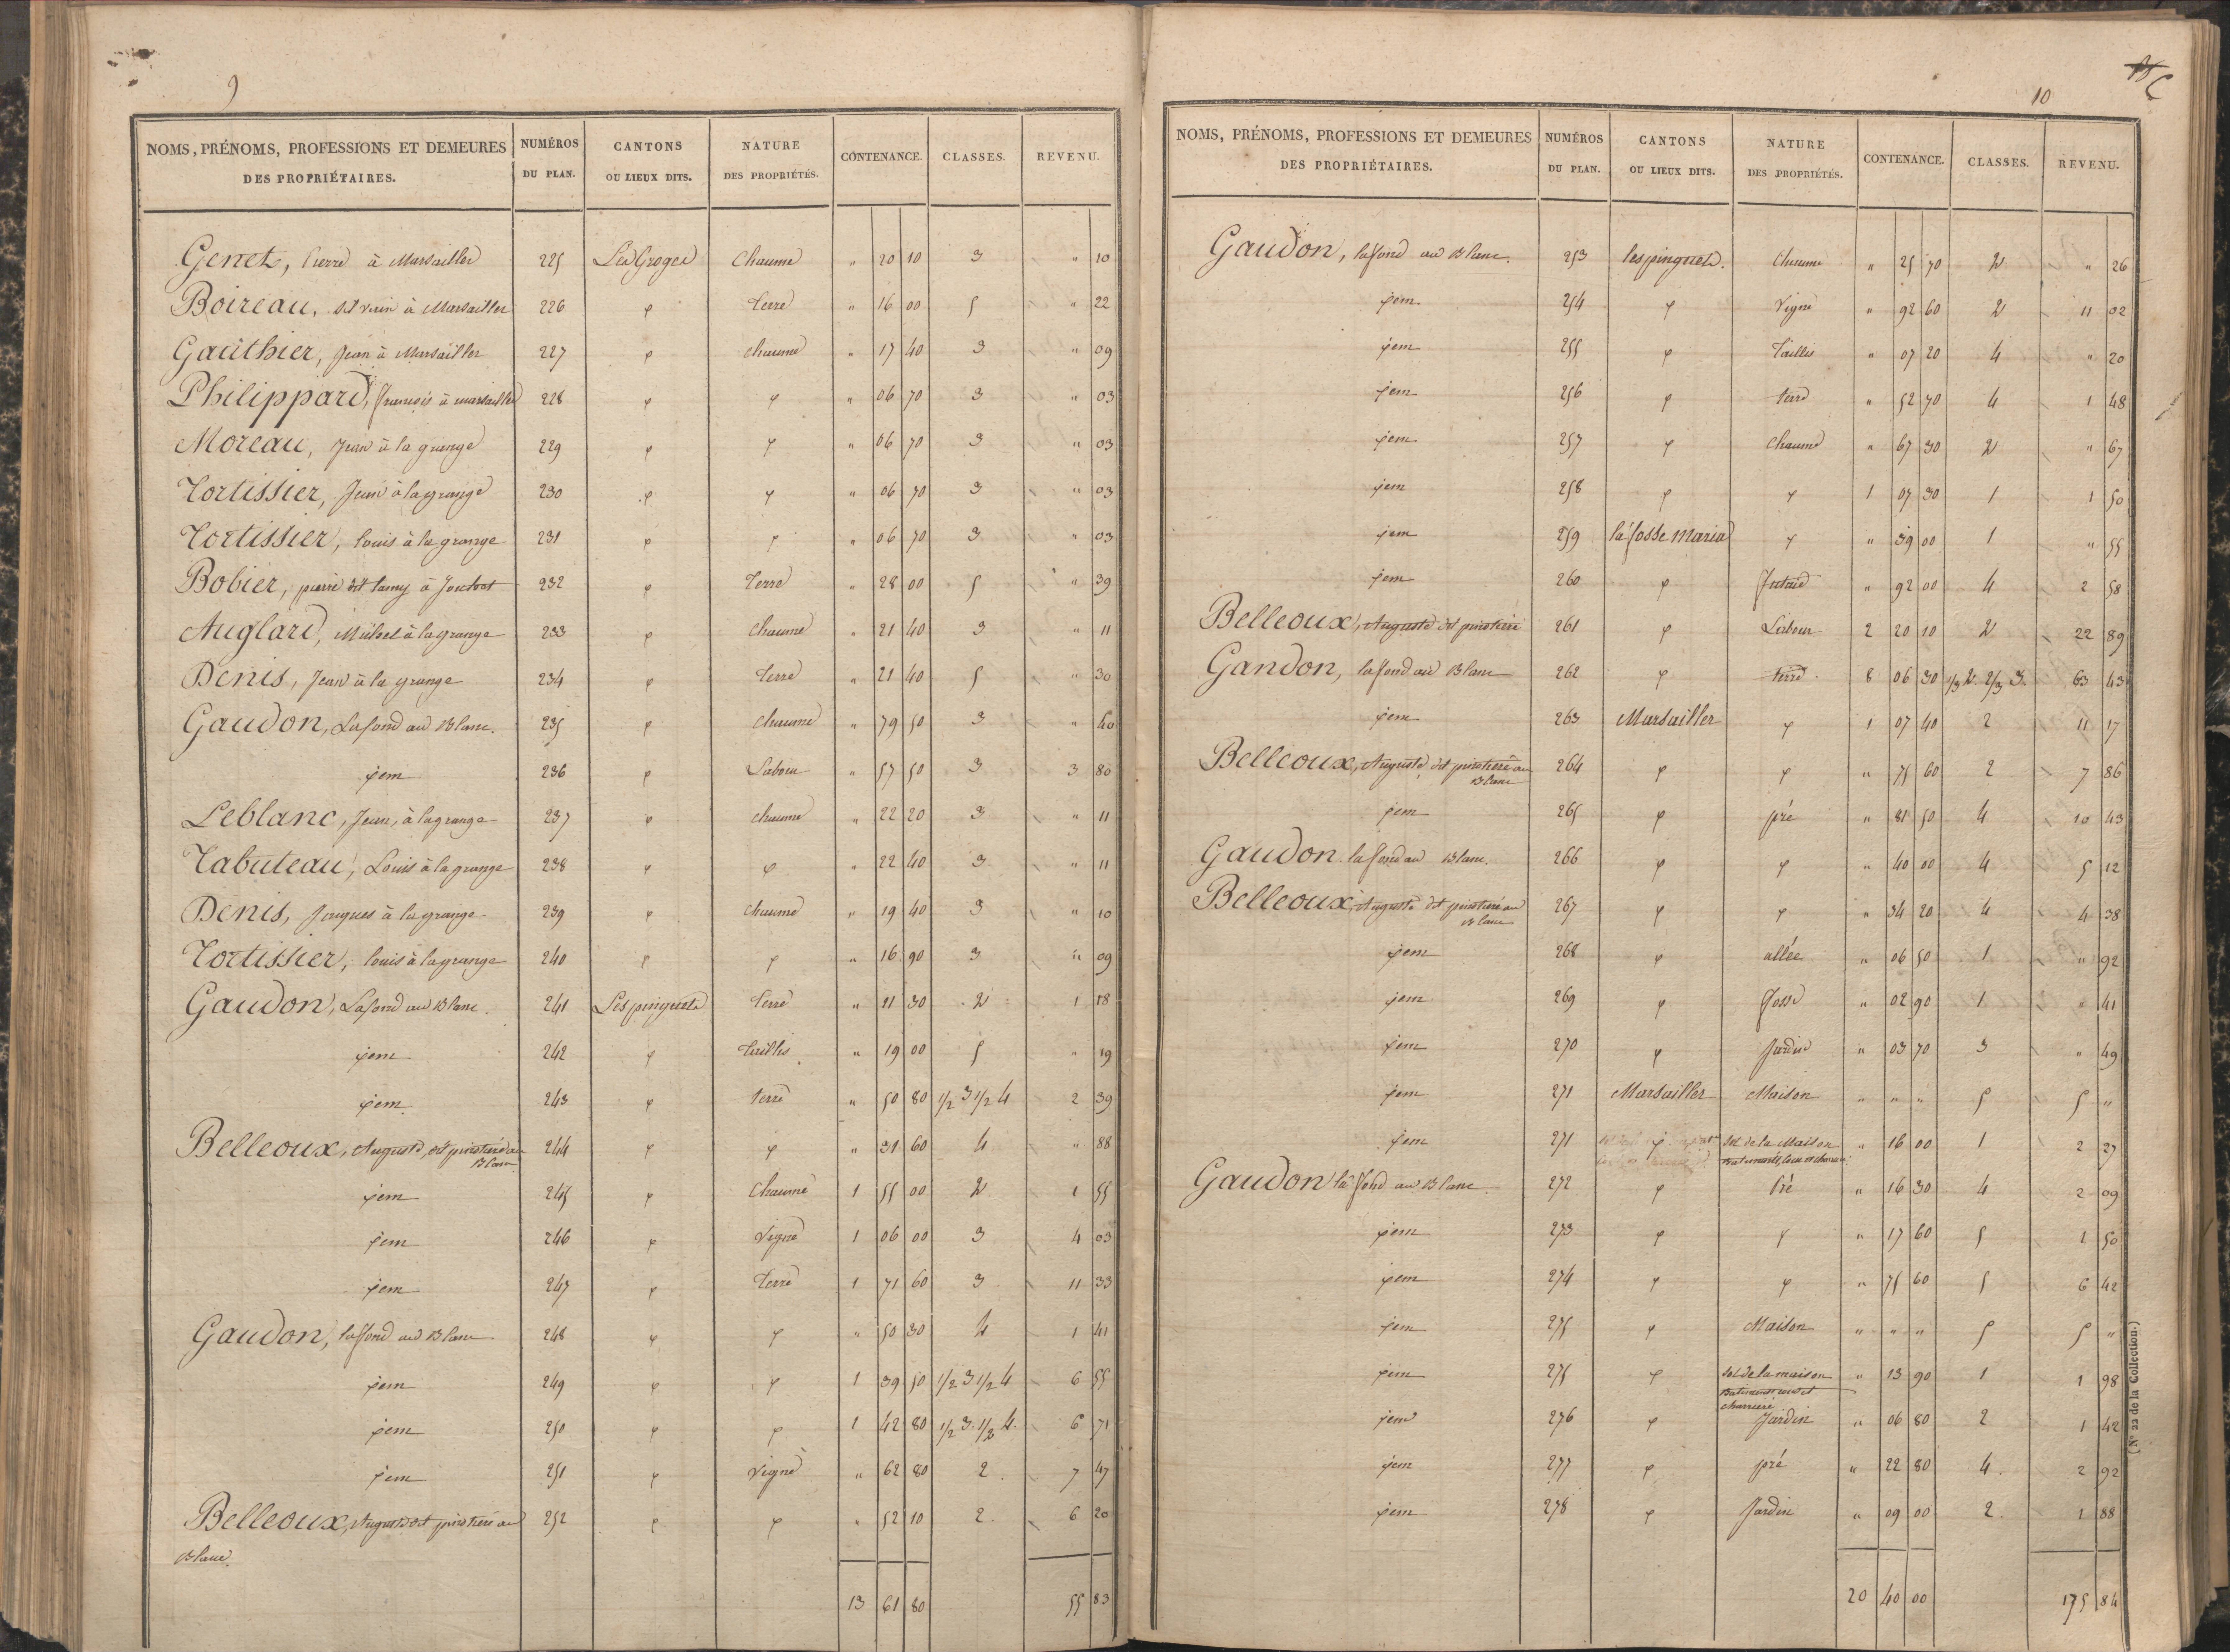 9
NOMS, PRÉNOMS, PROFESSIONS ET DEMEURES DES PROPRIÉTAIRES. | NUMÉROS DU PLAN. | CANTONS OU LIEUX DITS. | NATURE DES PROPRIÉTÉS. | CONTENANCE. | CLASSES. | REVENU.
Genet, Pierre à Marsailler 225 Les Groges Chaume " 20 10 3 " 10
Boireau, à Marsailler 226 φ terre " 16 00 5 " 22
Gauthier, Jean à Marsailler 227 φ chaume " 17 40 3 " 09
Philippard, françois à marsailler 228 φ φ " 06 70 3 " 03
Moreau, Jean à la grange 229 φ φ " 06 70 3 " 03
Tortissier, Jean à la grange 230 φ φ " 06 70 3 " 03
Tortissier, louis à la grange 231 φ φ " 06 70 3 " 03
Bobier, pierre dit lamy à 232 φ Terre " 28 00 5 " 39
Auglard, Michel à la grange 233 φ Chaume " 21 40 3 " 11
Denis, Jean à la grange 234 φ terre " 21 40 5 " 30
Gaudon, Lafond au Blanc. 235 φ chaume " 79 50 3 " 40
jem 236 φ Labour " 57 50 3 3 80
Leblanc, Jean, à la grange 237 φ chaume " 22 20 3 " 11
Tabuteau, Louis à la grange 238 φ φ " 22 40 3 " 11
Denis, Jacques à la grange 239 φ chaume " 19 40 3 " 10
Tortissier, louis à la grange 240 φ φ " 16 90 3 " 09
Gaudon, Lafond au Blanc. 241 Les pinguets terre " 21 30 2 1 18
jem 242 φ taillis " 19 00 5 " 19
jem 243 φ terre " 50 80 1/2 3 1/2 4 2 39
Belleoux, Auguste, dit au Blanc 244 φ φ " 31 60 4 " 88
jem 245 φ Chaume 1 55 00 2 1 55
jem 246 φ Vigne 1 06 00 3 4 03
jem 247 φ terre 1 71 60 3 11 33
Gaudon, lafond au Blanc 248 φ φ " 50 30 4 1 41
jem 249 φ φ 1 39 50 1/2 3 1/2 4 6 55
jem 250 φ φ 1 42 80 1/2 3. 1/2 4. 6 71
jem 251 φ Vigne " 62 80 2 7 47
Belleoux, Auguste dit au Blanc. 252 φ φ " 52 10 2. 6 20
13 61 80 55 83
10
NOMS, PRÉNOMS, PROFESSIONS ET DEMEURES DES PROPRIÉTAIRES. | NUMÉROS DU PLAN. | CANTONS OU LIEUX DITS. | NATURE DES PROPRIÉTÉS. | CONTENANCE. | CLASSES. | REVENU.
Gaudon, lafond au Blanc. 253 les pinguets. Chaume " 25 70 2 " 26
jem 254 φ Vigne " 92 60 2 11 02
jem 255 φ Taillis " 07 20 4 " 20
jem 256 φ terre " 52 70 4 1 48
jem 257 φ Chaume " 67 30 2 " 67
jem 258 φ φ 1 07 30 1 1 50
jem 259 la fosse Maria φ " 39 00 1 " 55
jem 260 φ futaie " 92 00 4 2 58
Belleoux, Auguste dit 261 φ Labour 2 20 10 2 22 89
Gaudon, lafond au Blanc 262 φ terre 8 06 30 1/3 2. 2/3 3. 63 43
jem 263 Marsailler φ 1 07 40 2 11 17
Belleoux, Auguste dit au Blanc 264 φ φ " 75 60 2 7 86
jem 265 φ pré " 81 50 4 10 43
Gaudon lafond au Blanc. 266 φ φ " 40 00 4 5 12
Belleoux, Auguste dit au Blanc 267 φ φ " 34 20 4 4 38
jem 268 φ allée " 06 50 1 " 92
jem 269 φ fossé " 02 90 1 " 41
jem 270 φ Jardin " 03 70 3 " 49
jem 271 Marsailler Maison " " " 5 5 "
jem 271 φ Sol de la Maison Batiments, cour et " 16 00 1 2 27
Gaudon lafond au Blanc. 272 φ Pré " 16 30 4 2 09
jem 273 φ φ " 17 60 5 1 50
jem 274 φ φ " 75 60 5 6 42
jem 275 φ Maison " " " 5 5 "
jem 275 φ Sol de la maison Batiments cour et charriere " 13 90 1 1 98
jem 276 φ Jardin " 06 80 2 1 42
jem 277 φ pré " 22 80 4. 2 92
jem 278 φ Jardin " 09 00 2. 1 88
20 40 00 175 84
(N° 22 de la Collection.)